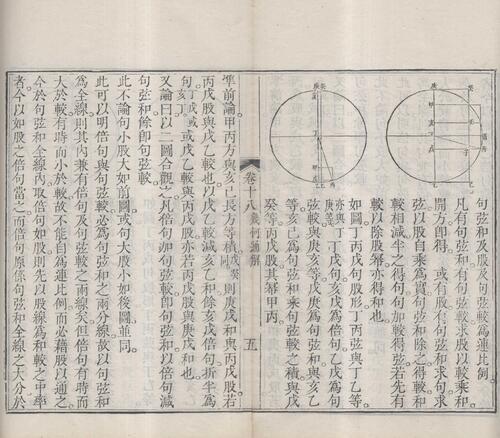 句弦和及股及句弦較為連比例
凡有句弦和有句弦較求股以較乘和
開方即得 或有股有句弦和求句求
弦以股自乘為實句弦和除之得較和
較相減半之得句句加較得弦若先有
較以除股冪亦得和也
如圖丁丙戊句股形丁丙弦與丁乙等
亦與丁亥等丁戊句亥戊為倍句乙戊為句
弦較與庚亥等戊庚為句弦和與亥乙
等亥己為句弦和乘句弦較之積與戊
癸等丙戊股其冪甲丙
卷十八 幾何通解
五
準前論甲丙方與亥己長方等積戊癸同則庚戊和與丙戊股若
丙戊股與戊乙較也以戊乙較減亥乙和餘亥戊倍句折半為
句亥丁或丁戊或戊乙較與丙戊股亦若丙戊股與庚戊和也
又論曰以二圖合觀之凡倍句加句弦較即句弦和以倍句減
句弦和餘即句弦較
此不論句小股大如前圖或句大股小如後圖並同
此可以明倍句與句弦較必為句弦和之兩分線故以句弦和
為全線則其內兼有倍句及句弦較之兩線矣但倍句有時而
大於較有時而小於較故不能自為連比例而必藉股以通之
今於句弦和全線內取倍句如股則先以股線為和較之中率
者今以如股之倍句當之而倍句原係句弦和全線之大分於